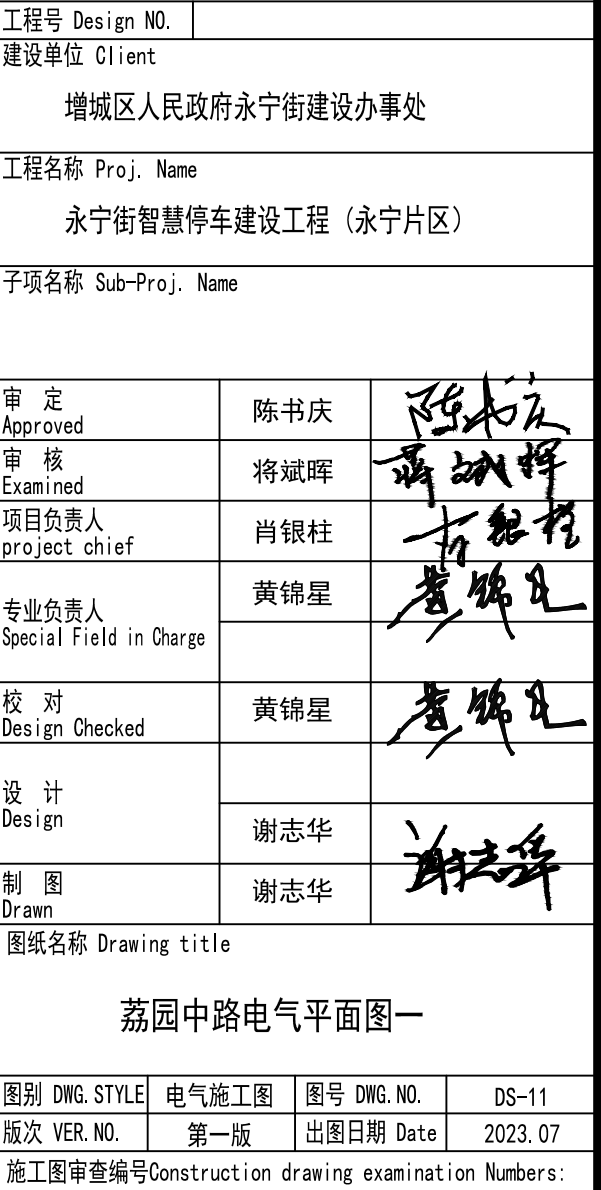 工程号 Design NO.
建设单位 Client
增城区人民政府永宁街建设办事处
工程名称 Proj. Name
永宁街智慧停车建设工程（永宁片区）
子项名称 Sub-Proj. Name
审 定 陈书庆 陈书庆
Approved
审 核 将斌晖 蒋斌晖
Examined
项目负责人 肖银柱 肖银柱
project chief
黄锦星 黄锦星
专业负责人
Special Field in Charge
校 对 黄锦星 黄锦星
Design Checked
设 计
Design
谢志华 谢志华
制 图 谢志华
Drawn
图纸名称 Drawing title
荔园中路电气平面图一
图别 DWG.STYLE 电气施工图 图号 DWG.NO. DS-11
版次 VER.NO. 第一版 出图日期 Date 2023.07
施工图审查编号Construction drawing examination Numbers: